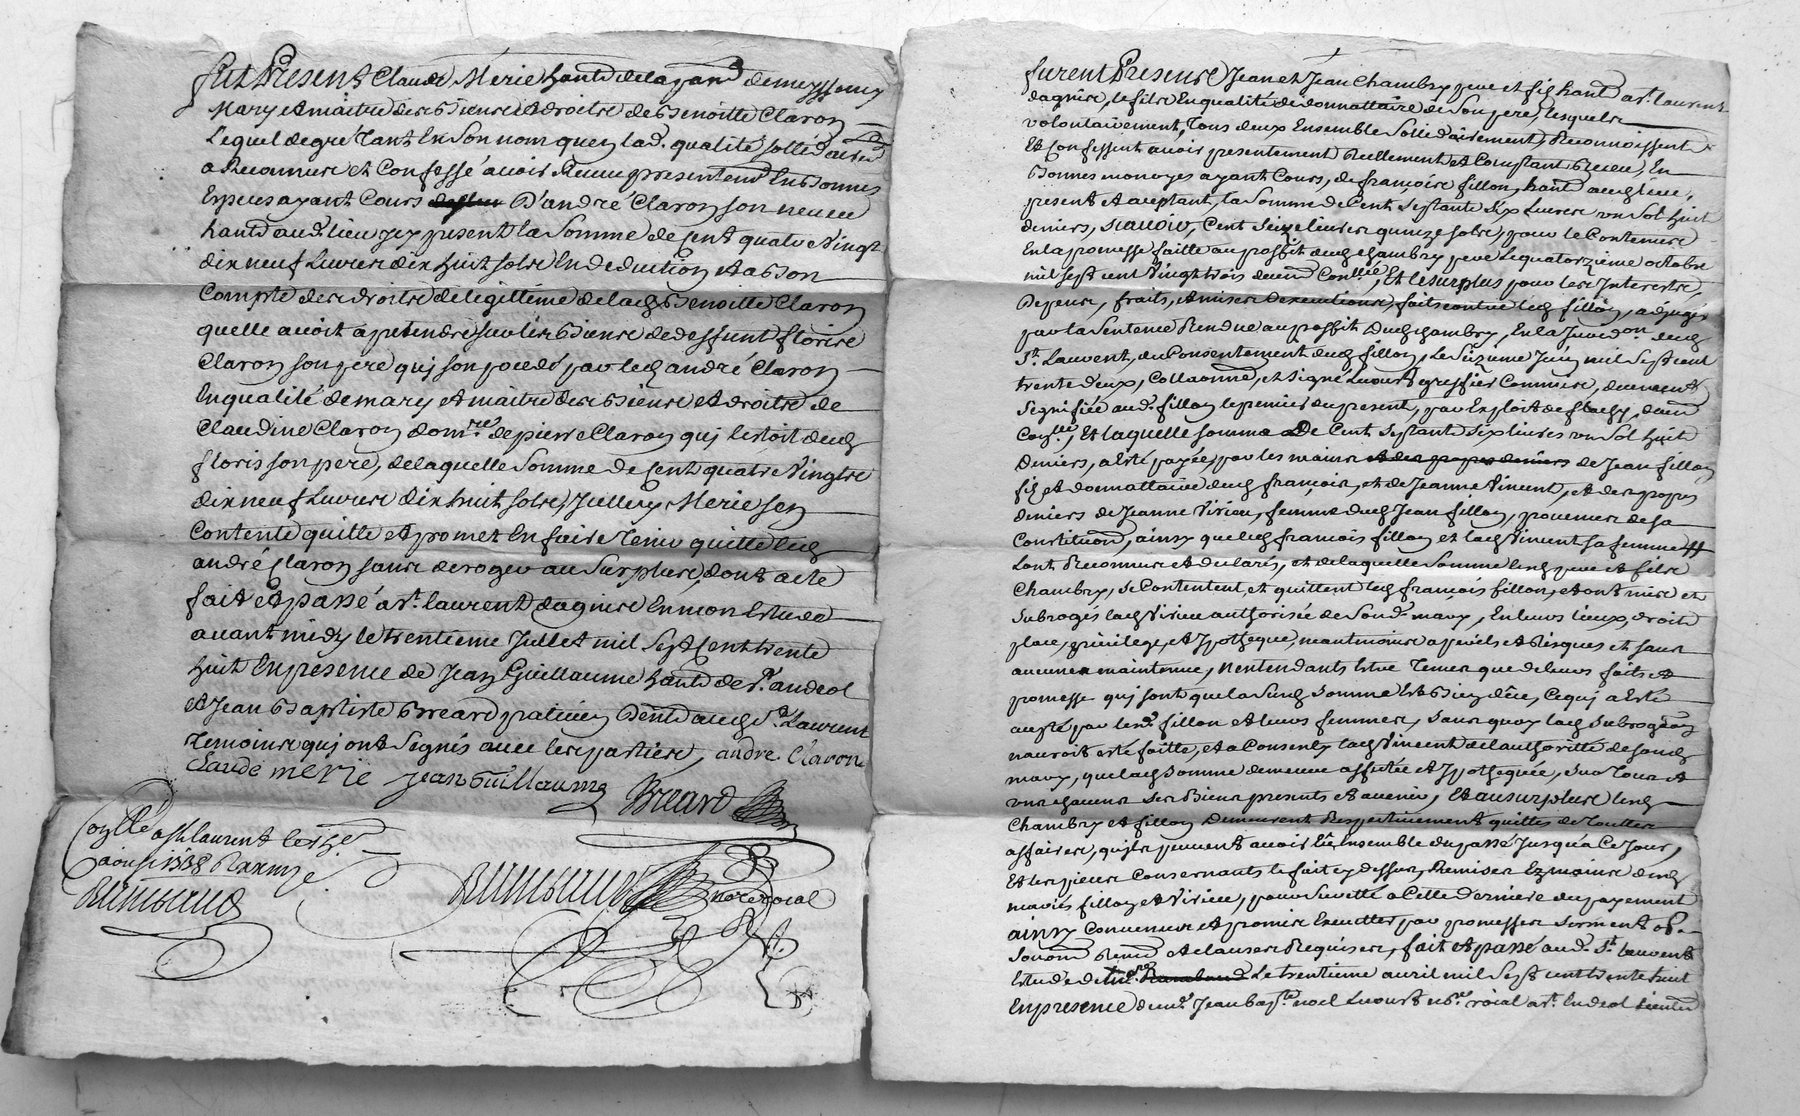 fut Present Claude Merie habtt de la par. de messimy
Mary et maitre des biens et droits de Benoitte Claron
Lequel de gre tant en son nom quen lad. qualité sollidaires
a Reconnu et Confessé avoir Receu presentemt En bonnes
Especes ayant Cours D'andré Claron son neveu
habtt aud. lieu jcy present la Somme de Cent quatre Vingt
dix neuf Livres dix huit sols En deduction et a bon
Compte des droits de legittime de lad. Benoitte Claron
quelle avoit a pretendre sur les biens de deffunt floris
Claron son pere quj son possedé par led. andré Claron
En qualité de mary et maitre des biens et droits de
Claudine Claron de pierre Claron quj Lestoit dud.
floris son pere, de laquelle Somme de Cent quatre Vingts
dix neuf Livres dix huit sols, Jcelluy Merie sen
Contente quitte et promet En faire Tenir quitte led.
andré Claron sans deroger au Surplus, dont acte
fait et passé a St. laurent dagnis En mon Estude
avant midy le trentieme Juillet mil Sept Cent trente
huit En presence de Jean Guillaume habtt de St. andeol
et Jean Baptiste Breard praticien demt aud. St. Laurent
Temoins quj ont Signés avec les parties, andre Claron
Claude merie jean Guillaume Breard
Conllé a St laurent le
aoust 1738 R
notre roial
furent Presents Jean et Jean Chambry pere et fils habtts a St. laurent
dagnis, le fils En qualité de donnattaire de Son pere, Lesquels
volontairement, Tous deux Ensemble Sollidairement, Reconnoissent
Et Confessent avoir presentement Reellement et Comptant Receu, En
Bonnes monoyes ayant Cours, de francois fillon, habtt aud. lieu,
present et acceptant, la Somme de Cent Septante Six Livres un Sol huit
deniers, scavoir, Cent Seize livres quinze sols, pour le Contenu
En la promesse faitte au proffit dud. Chambry pere Le quatorzieme octobre
mil Sept cent Vingt trois Conllée, Et le surplus pour les Interests,
Depens, fraits, et mises dexecutions, faits contre led. fillon, adjugés
par la Sentence Rendue au proffit dud. Chambry, En la Juridon. dud.
St. Laurent, du Consentement dud. fillon, Le Seizieme Juin mil Sept cent
trente deux, Collaonnée, et Signé Luours greffier Commis, deuement
Segnifiée aud. fillon le premier du present, par Exploit de flachy,
Conllé, Et laquelle somme De Cent Septante Six livres un Sol huit
Deniers, a Esté payée, par les mains de Jean fillon
fils et donnattaire dud. francois, et de Jeanne Vincent, et des propres
deniers de Jeanne Virieu, femme dud. Jean fillon, provenus de sa
Constitution, ainsy que led. francois fillon et lad. Vincent sa femme
Lont Reconnu et declaré, et de laquelle Somme lesd. pere et fils
Chambry, se Contentent, et quittent led. francois fillon, et ont mis et
Subrogés lad. Virieu authorisée de Sond. mary, En leurs lieux, droit
place, privilege, et Jpotheque, neantmoins a perils et Risques et sans
aucune maintenue, Nentendants Estre Tenus que de leurs faits et
promesse quj sont que la Susd. Somme Est bien düe, Cequj a Esté
accepté par lesd. fillon et leurs femmes, Sans quoy lad. Subrogaon
nauroit esté faitte, et a Consenty lad. Vincent de lauthoritté de sond.
mary, que lad. Somme demeure affectée et Jpothequée, Sur Tous et
uns chacuns Ses Biens presents et avenir, Et au surplus lesd.
Chambry et fillon Demeurent Respectivement quittes de Touttes
affaires, quils peuvent avoir Eu Ensemble du passé Jusqu'a Ce Jour,
Et les pieces Consernants le fait cy dessus, Remises Ez mains desd.
mariés fillon et Virieu, pour Servette a Cette derniere du payement
ainsy Convenu et promis Executter par promesses serment ob-
et clauses Requises, fait et passé aud. St. laurent
Estude de Le trentieme avril mil Sept cent trente huit
En presence de me. Jean bapte. noel Luours nore. roial a St. Endeol